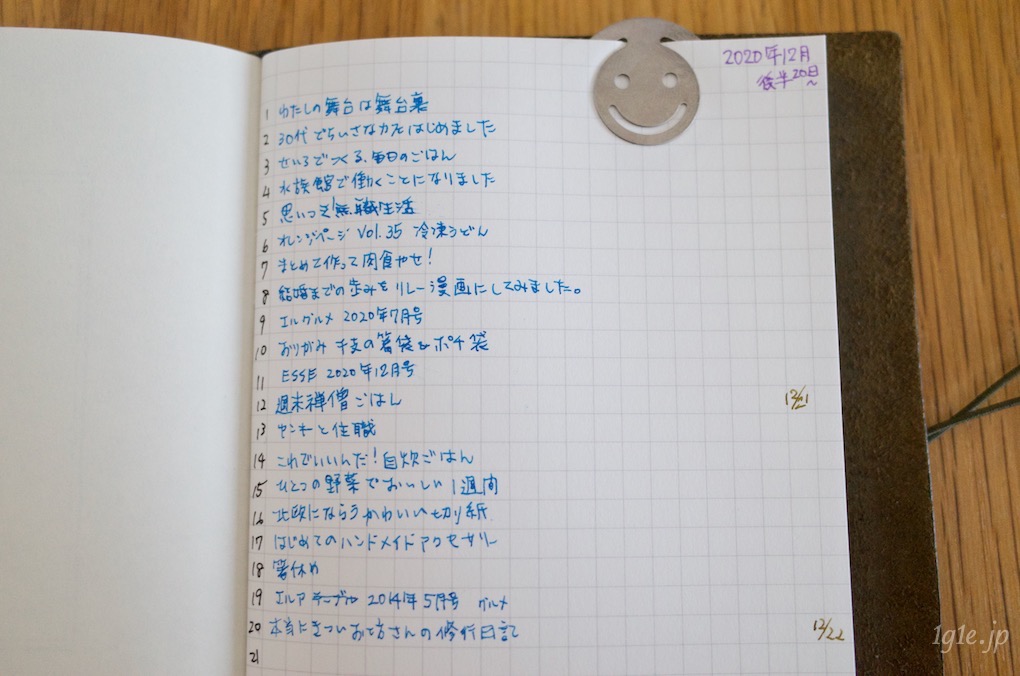 2020年12月
後半20日
～
1 わたしの舞台は舞台裏
2 30代でちいさなカフェはじめました
3 せいろでつくる、毎日のごはん
4 水族館で働くことになりました
5 思いつき無職生活
6 オレンジページ Vol.35 冷凍うどん
7 まとめて作って肉食やせ!
8 結婚までの歩みをリレー漫画にしてみました。
9 エルグルメ 2020年7月号
10 おりがみ 干支の箸袋&ポチ袋
11 ESSE 2020年12月号
12 週末禅僧ごはん 12/21
13 ヤンキーと住職
14 これでいいんだ!自炊ごはん
15 ひとつの野菜でおいしい1週間
16 北欧にならうかわいい切り紙
17 はじめてのハンドメイドアクセサリー
18 箸休め
19 エルア テーブル 2014年5月号 グルメ
20 本当にきついお坊さんの修行日記 12/22
21
1g1e.jp